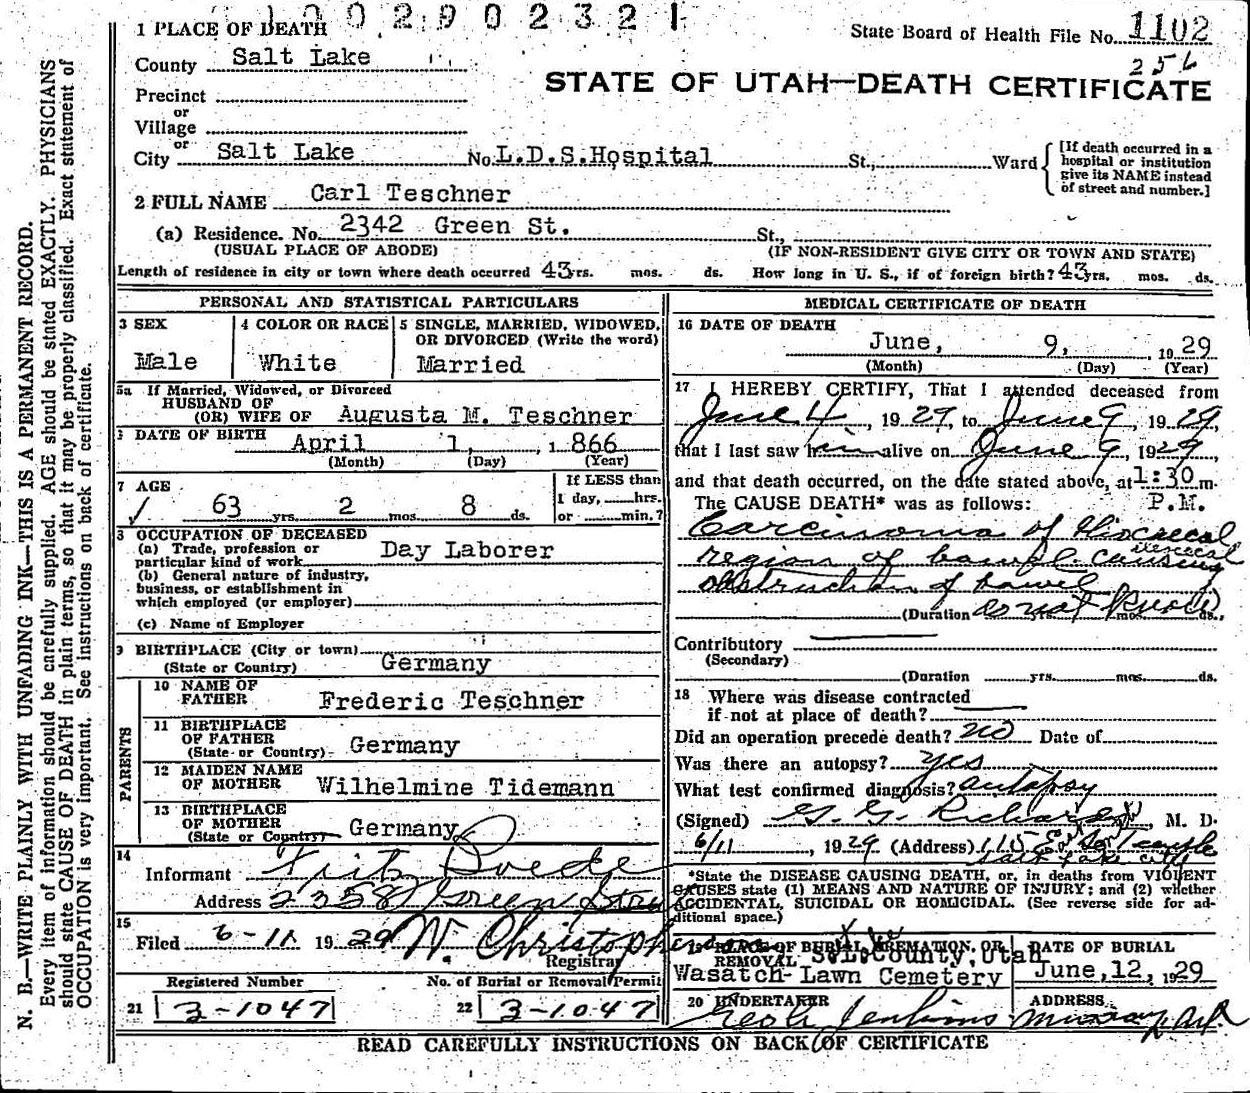 1 0 0 2 9 0 2 3 2 1
1 PLACE OF DEATH
State Board of Health File No. 1102
256
County Salt Lake
STATE OF UTAH—DEATH CERTIFICATE
Precinct
or
Village
or
City Salt Lake No. L.D.S. Hospital St., Ward
[If death occurred in a
hospital or institution
give its NAME instead
of street and number.]
2 FULL NAME Carl Teschner
(a) Residence. No. 2342 Green St. St.,
(USUAL PLACE OF ABODE) (IF NON-RESIDENT GIVE CITY OR TOWN AND STATE)
Length of residence in city or town where death occurred 43 yrs. mos. ds. How long in U. S., if of foreign birth? 43 yrs. mos. ds.
PERSONAL AND STATISTICAL PARTICULARS
3 SEX
Male
4 COLOR OR RACE
White
5 SINGLE, MARRIED, WIDOWED,
OR DIVORCED (Write the word)
Married
5a If Married, Widowed, or Divorced
HUSBAND OF
(OR) WIFE OF Augusta M. Teschner
DATE OF BIRTH April 1, 1866
(Month) (Day) (Year)
7 AGE
63 yrs. 2 mos. 8 ds.
If LESS than
1 day, hrs.
or min.?
8 OCCUPATION OF DECEASED
(a) Trade, profession or
particular kind of work Day Laborer
(b) General nature of industry,
business, or establishment in
which employed (or employer)
(c) Name of Employer
9 BIRTHPLACE (City or town)
(State or Country) Germany
PARENTS
10 NAME OF
FATHER Frederic Teschner
11 BIRTHPLACE
OF FATHER
(State or Country) Germany
12 MAIDEN NAME
OF MOTHER Wilhelmine Tidemann
13 BIRTHPLACE
OF MOTHER
(State or Country) Germany
14
Informant Fritz
Address 2358 Green
15
Filed 6-11 1929 W. Christopherson
Registrar
Registered Number
21 3-1047
No. of Burial or Removal Permit
22 3-1047
MEDICAL CERTIFICATE OF DEATH
16 DATE OF DEATH
June, 9, 1929
(Month) (Day) (Year)
17 I HEREBY CERTIFY, That I attended deceased from
June 4, 1929, to June 9, 1929,
that I last saw him alive on June 9, 1929,
and that death occurred, on the date stated above, at 1:30 m.
The CAUSE DEATH* was as follows: P.M.
Carcinoma of Iliocaecal
region of bowel causing
obstruction of bowel
(Duration do not know yrs. mos. ds.,
Contributory
(Secondary)
(Duration yrs. mos. ds.
18 Where was disease contracted
if not at place of death?
Did an operation precede death? no Date of
Was there an autopsy? yes
What test confirmed diagnosis? autopsy
(Signed) G. G. Richards, M. D.
6/11, 1929 (Address) 115 E. So Temple
Salt Lake City
*State the DISEASE CAUSING DEATH, or, in deaths from VIOLENT
CAUSES state (1) MEANS AND NATURE OF INJURY; and (2) whether
ACCIDENTAL, SUICIDAL OR HOMICIDAL. (See reverse side for ad-
ditional space.)
19 PLACE OF BURIAL, CREMATION, OR
REMOVAL S.L. County, Utah
Wasatch-Lawn Cemetery
DATE OF BURIAL
June, 12, 1929
20 UNDERTAKER
Jenkins
ADDRESS
Murray,
READ CAREFULLY INSTRUCTIONS ON BACK OF CERTIFICATE
N. B.—WRITE PLAINLY WITH UNFADING INK—THIS IS A PERMANENT RECORD.
Every item of information should be carefully supplied. AGE should be stated EXACTLY. PHYSICIANS
should state CAUSE OF DEATH in plain terms, so that it may be properly classified. Exact statement of
OCCUPATION is very important. See instructions on back of certificate.